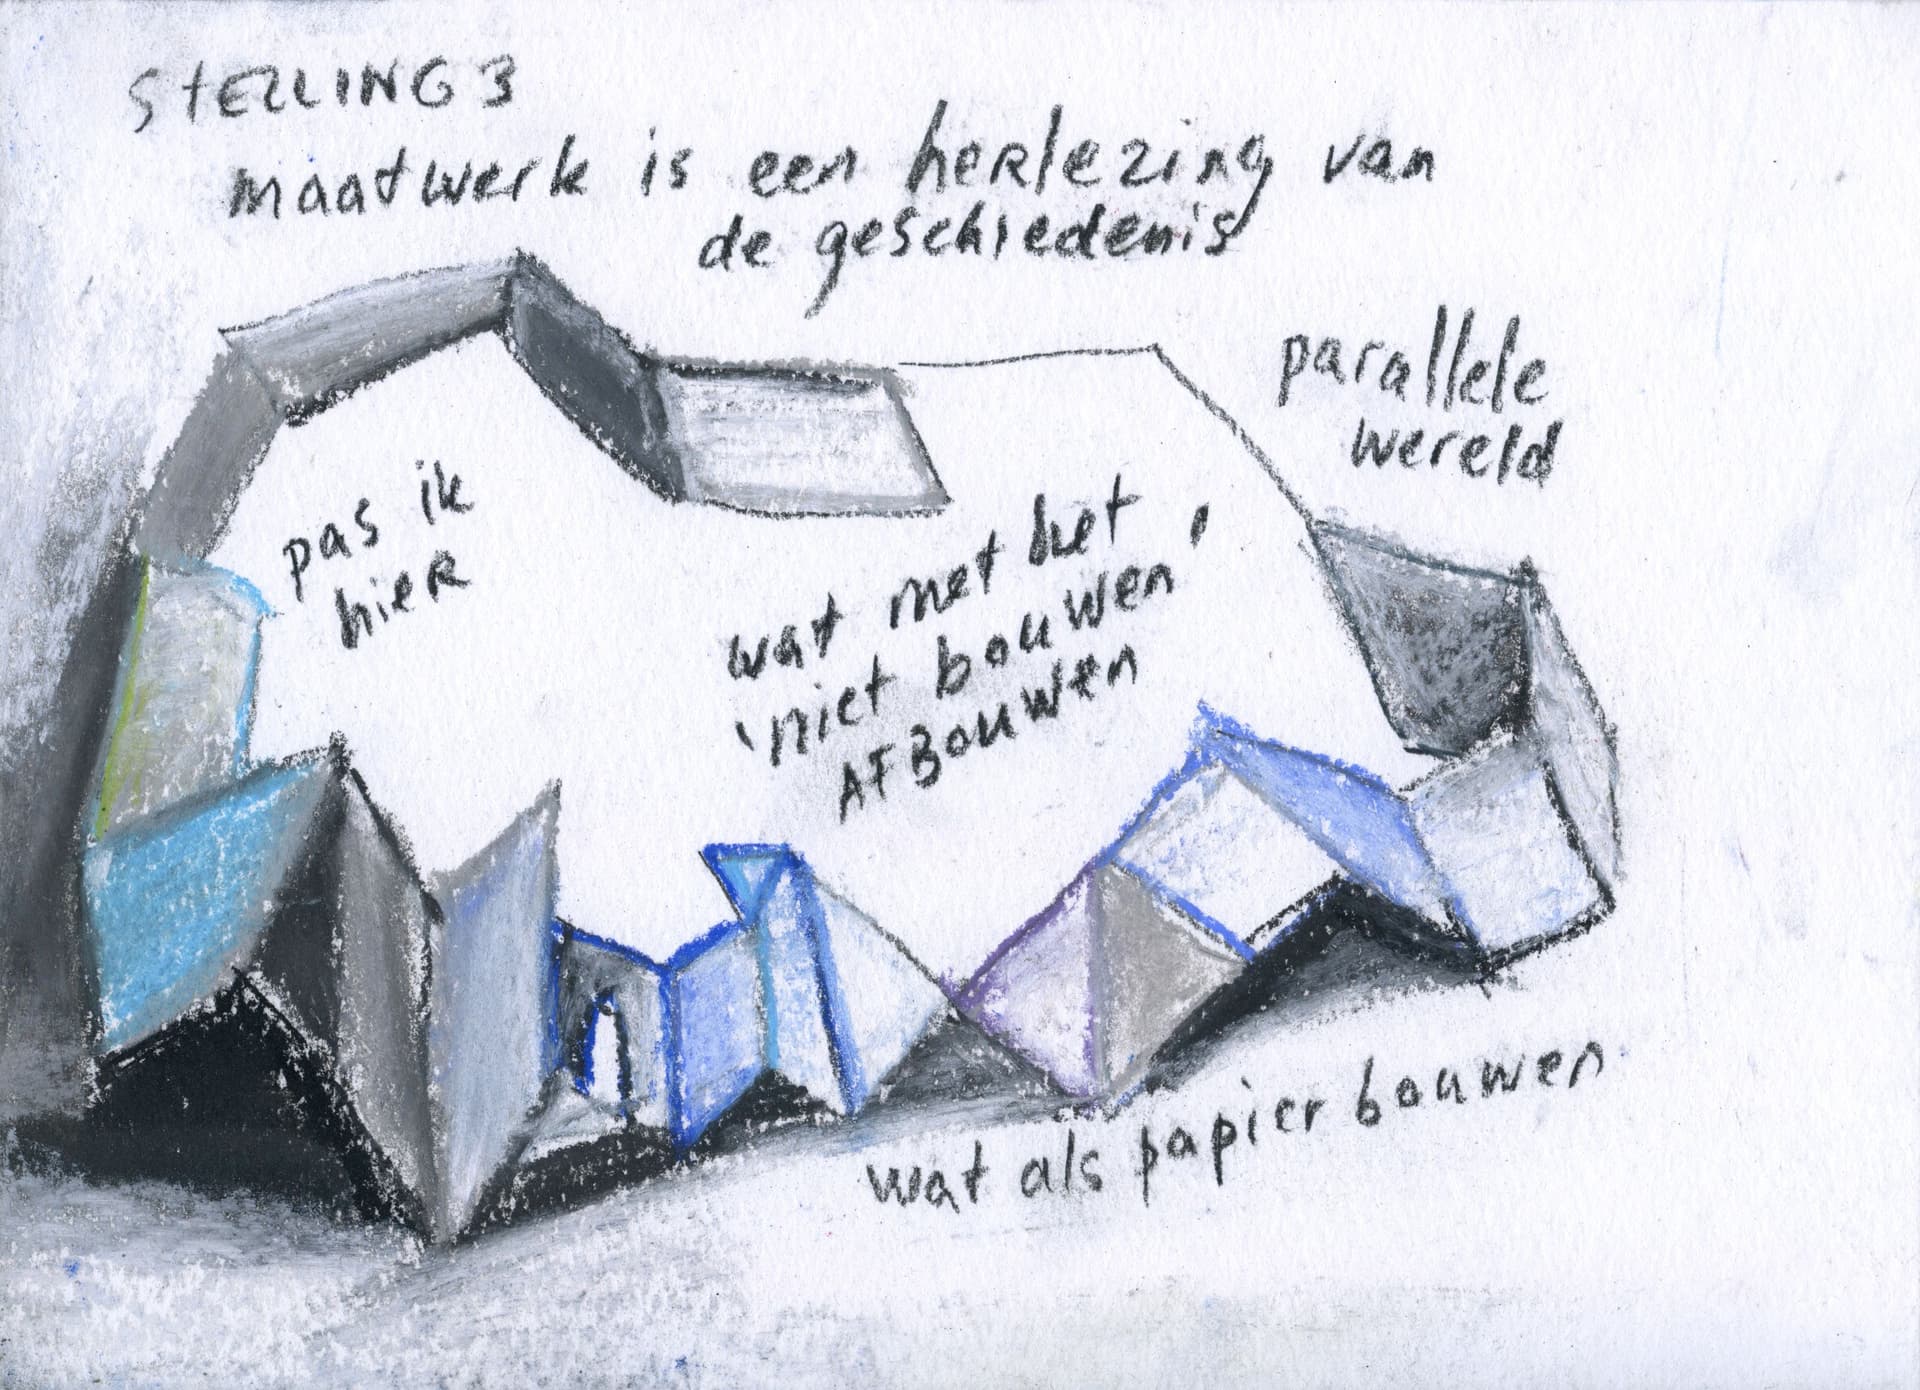 STELLING 3
maatwerk is een herlezing van
de geschiedenis
parallele
wereld
pas ik
hier
wat met het
'niet bouwen'
AFBouwen
wat als papier bouwen